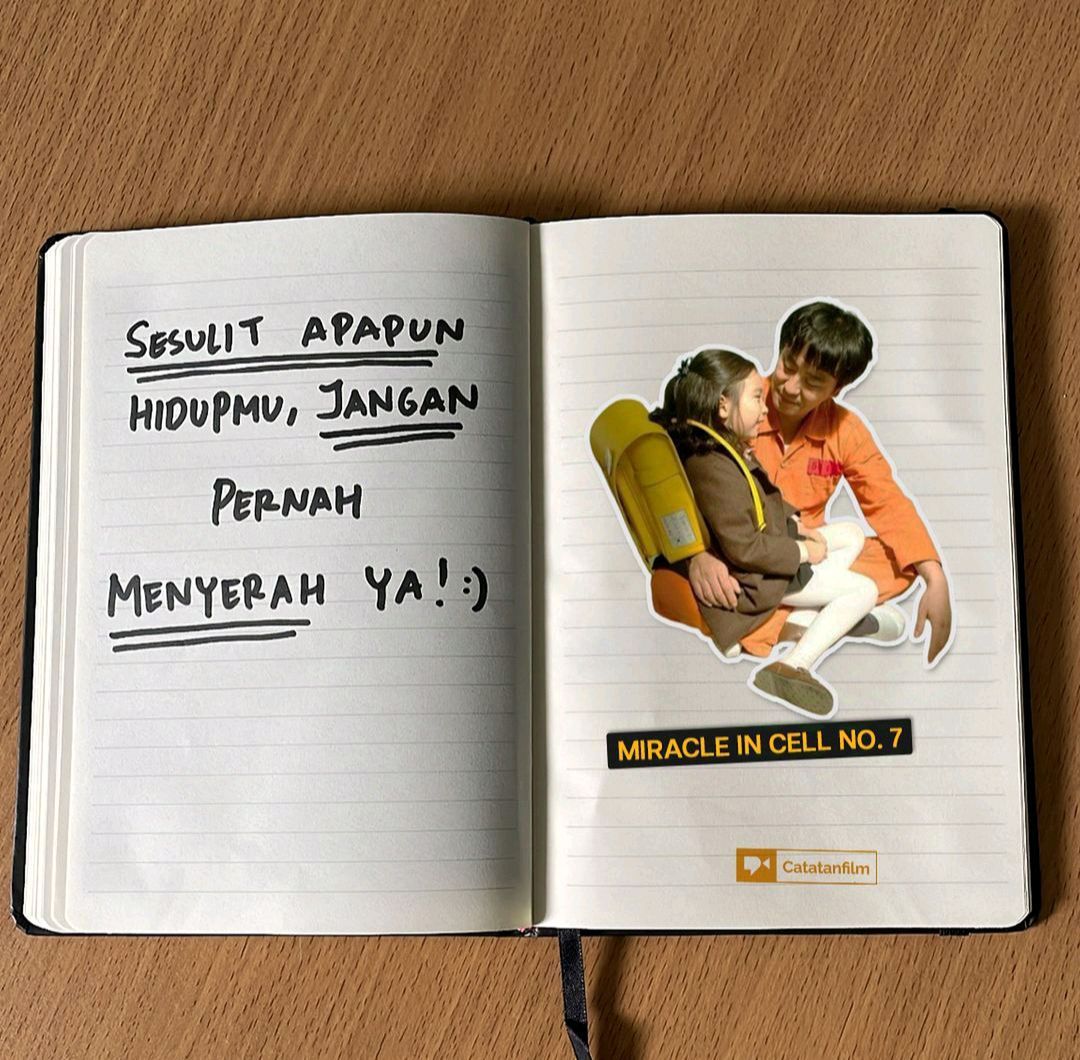 SESULIT APAPUN
HIDUPMU, JANGAN
PERNAH
MENYERAH YA! :)
MIRACLE IN CELL NO. 7
Catatanfilm